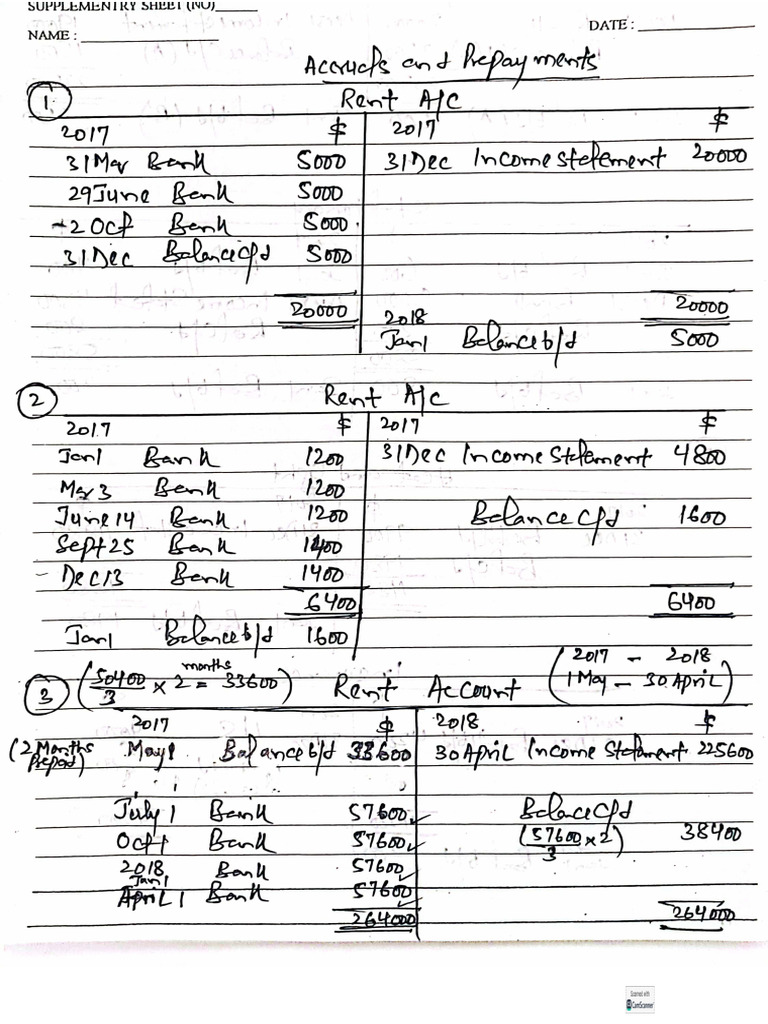 SUPPLEMENTRY SHEET (NO)______
DATE : ______________
NAME : ________________
Accruals and Prepayments
1 Rent A/C
2017 $ 2017 $
31 Mar Bank 5000 31 Dec Income statement 20000
29 June Bank 5000
2 Oct Bank 5000
31 Dec Balance c/d 5000
20000 20000
2018
Jan 1 Balance b/d 5000
2 Rent A/C
2017 $ 2017 $
Jan 1 Bank 1200 31 Dec Income statement 4800
Mar 3 Bank 1200
June 14 Bank 1200 Balance c/d 1600
Sept 25 Bank 1400
Dec 13 Bank 1400
6400 6400
Jan 1 Balance b/d 1600
3 (50400/3 × 2 months = 33600) Rent Account (2017 – 2018
1 May – 30 April)
2017 $ 2018 $
(2 Months Prepaid) May 1 Balance b/d 33600 30 April Income statement 225600
July 1 Bank 57600 Balance c/d
Oct 1 Bank 57600 (57600/3 × 2) 38400
2018
Jan 1 Bank 57600
April 1 Bank 57600
264000 264000
Scanned with
CamScanner